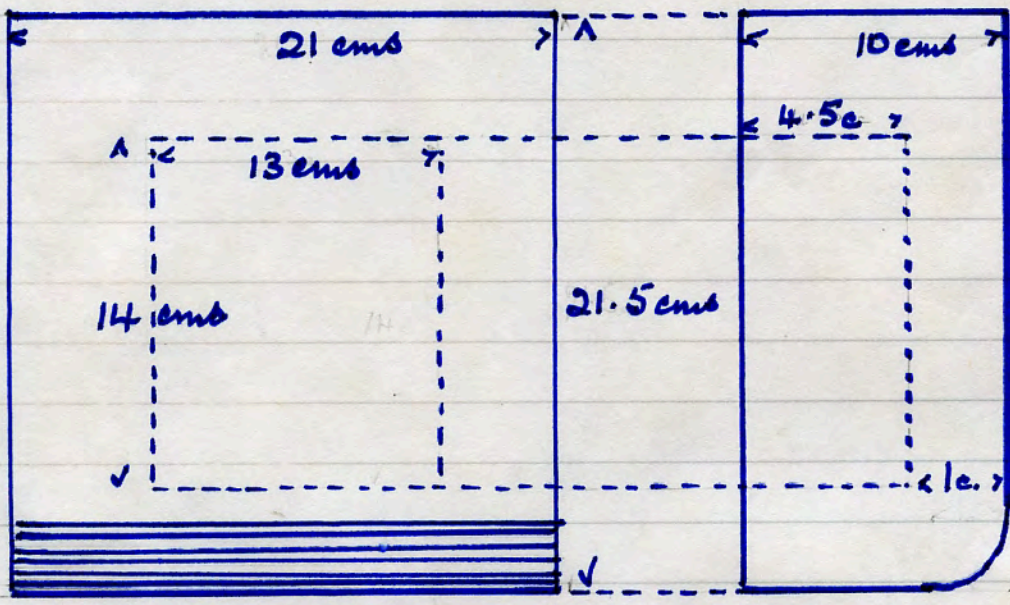 21 cms
10 cms
4.5c
13 cms
14 cms
21.5 cms
1c.